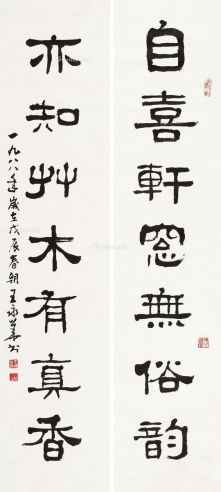 自喜軒窓無俗韵
亦知艸木有真香
一九八八年歲在戊辰春朝王永華书